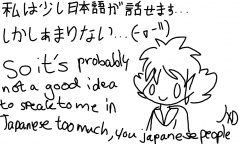 私は少し日本語が話せます...
しかしあまりない... (-▽-||)
So it's probably
not a good idea
to speak to me in
Japanese too much, you japanese people